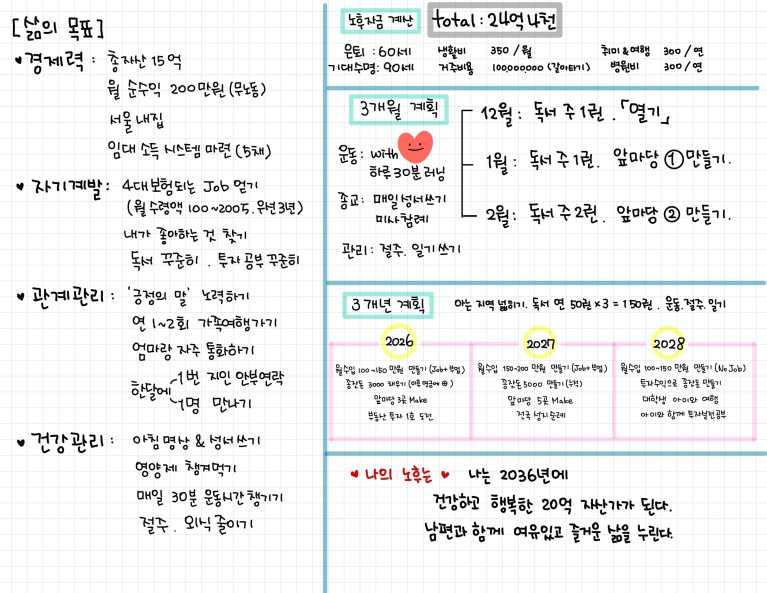 [삶의 목표]
♥경제력 : 총자산 15억
월 순수익 200만원 (무노동)
서울 내집
임대 소득 시스템 마련 (5채)
♥자기계발 : 4대보험되는 Job 얻기
(월 수령액 100~200도, 우선 3년)
내가 좋아하는 것 찾기
독서 꾸준히, 투자 공부 꾸준히
♥관계관리 : '긍정의 말' 노력하기
연 1~2회 가족여행가기
엄마랑 자주 통화하기
한달에 1번 지인 안부연락
1명 만나기
♥건강관리 : 아침명상 & 성서쓰기
영양제 챙겨먹기
매일 30분 운동시간 챙기기
절주, 외식 줄이기
노후자금 계산 total : 24억 4천
은퇴 : 60세 생활비 350 / 월 취미&여행 300 / 연
기대수명 : 90세 거주비용 100,000,000 (갈아타기) 병원비 300 / 연
3개월 계획
운동 : with
하루 30분 러닝
종교 : 매일성서쓰기
미사참례
관리 : 절주, 일기쓰기
12월 : 독서 주 1권, 「열기」
1월 : 독서 주 1권, 앞마당 ① 만들기.
2월 : 독서 주 2권, 앞마당 ② 만들기.
3개년 계획 아는 지역 넓히기. 독서 연 50권 × 3 = 150권, 운동, 절주, 일기
2026
월수입 100~150 만원 만들기 (Job+부업)
종잣돈 3000 채우기
앞마당 3곳 Make
부동산 투자 1호 도전
2027
월수입 150~200 만원 만들기 (Job+부업)
종잣돈 5000 만들기 (누적)
앞마당 5곳 Make
전국 성지순례
2028
월수입 100~150 만원 만들기 (No Job)
투자수익으로 종잣돈 만들기
대학생 아이와 여행
아이와 함께 투자실전공부
♥ 나의 노후는 ♥ 나는 2036년에
건강하고 행복한 20억 자산가가 된다.
남편과 함께 여유있고 즐거운 삶을 누린다.